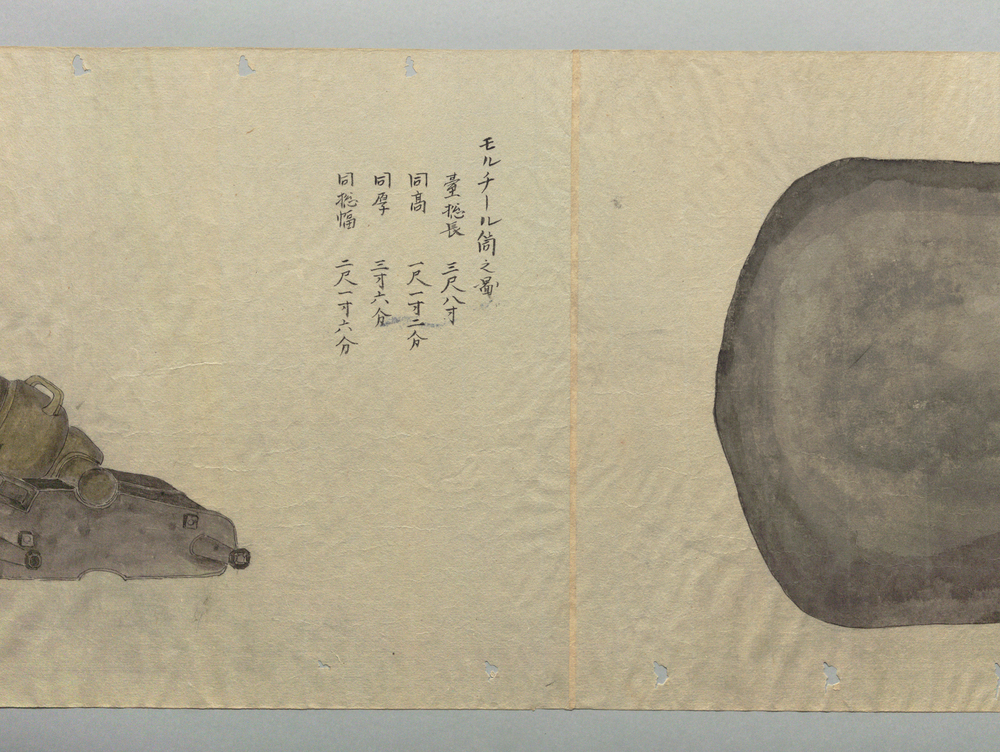 モルチール筒之圖
臺捴長 三尺八寸
同高 一尺一寸二分
同厚 三寸六分
同捴幅 二尺一寸六分